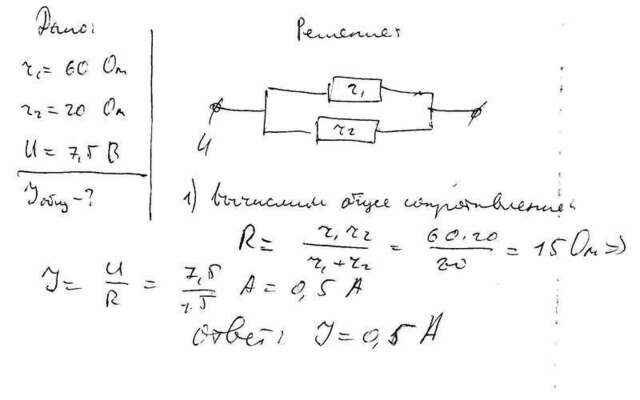 Дано:
r₁ = 60 Ом
r₂ = 20 Ом
U = 7,5 В
Jобщ - ?
Решение:
r₁
r₂
U
1) вычислим общее сопротивление:
R = r₁r₂/(r₁+r₂) = 60·20/80 = 15 Ом ⇒
J = U/R = 7,5/15 A = 0,5 A
ответ: J = 0,5 A